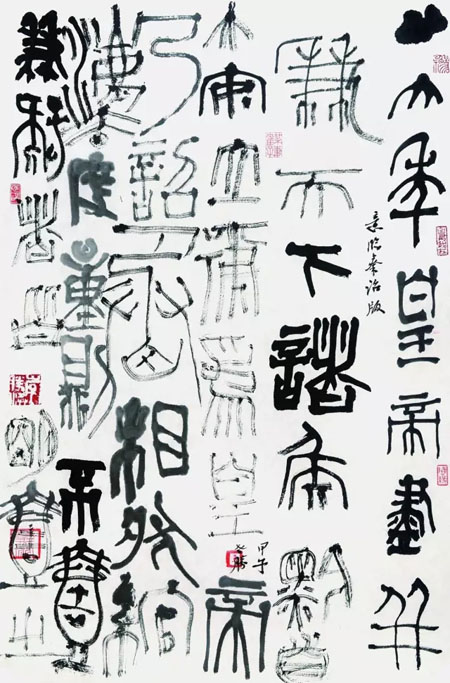 廿六年皇帝盡并
兼天下諸侯黔首
意臨秦詔版
大安立號為皇帝
甲午
乃詔丞相狀綰
灋度量則不壹
歉疑者皆明壹之